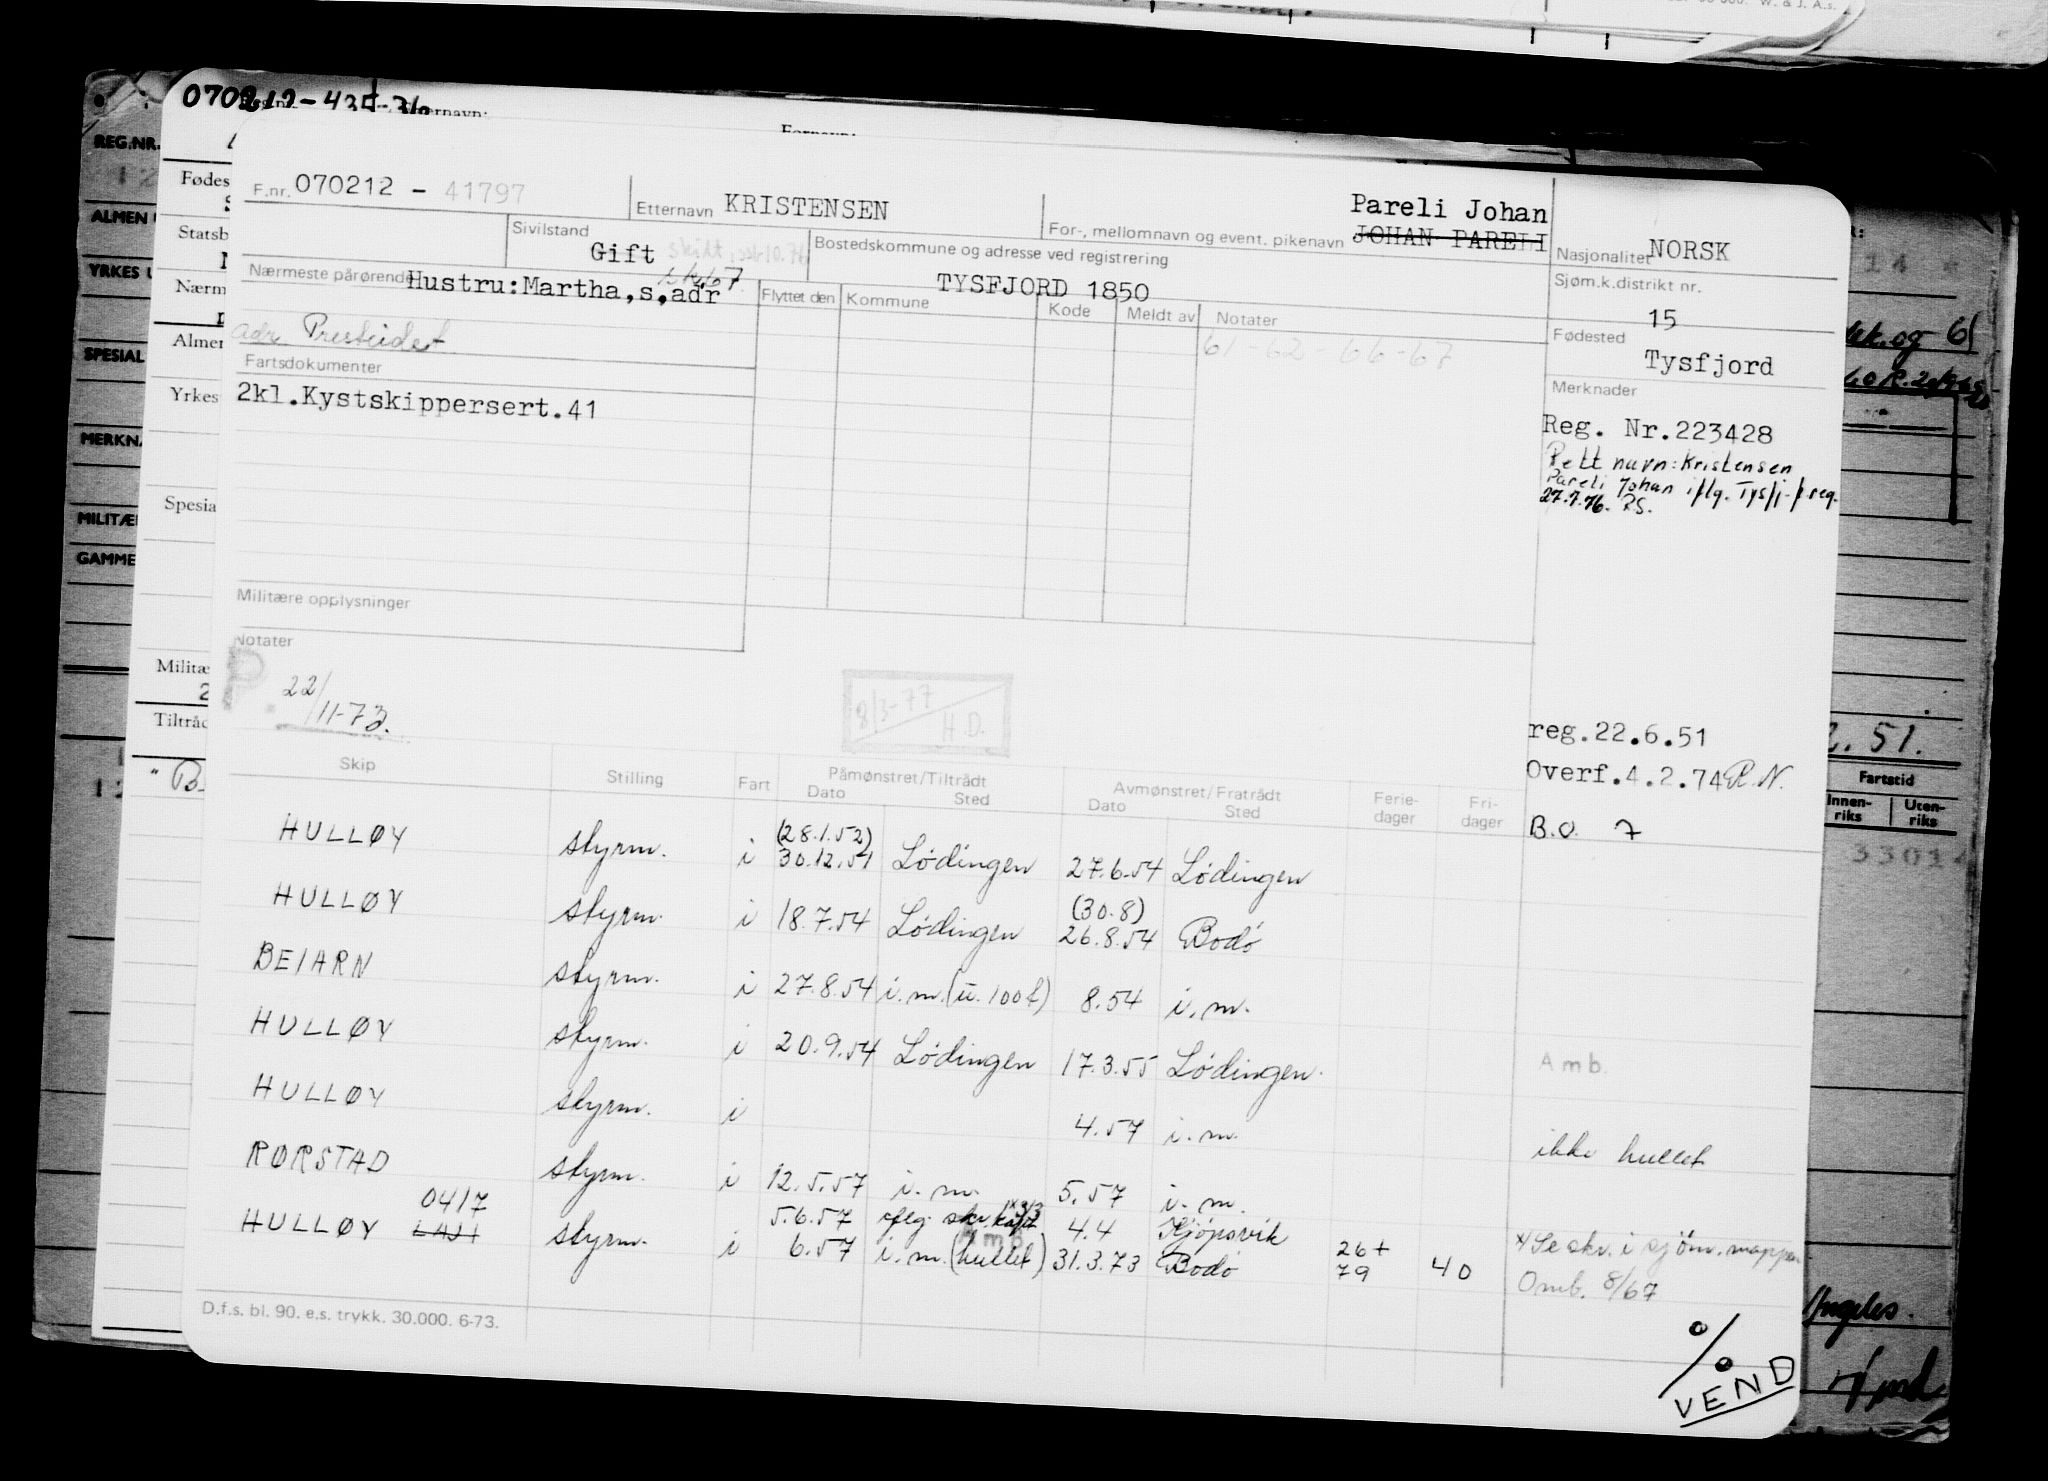 W. & J. A.s.
070212-435-36
Fornavn:
REG.NR.
ALMEN
YRKES
SPESIAL
MERKN
MILITÆ
GAMME
Fødes
Statsb
Nærm
Almer
Yrkes
Spesia
Militæ
2
Tiltråd
F.nr. 070212 - 41797
Etternavn KRISTENSEN
For-, mellomnavn og event. pikenavn Pareli Johan
JOHAN PARELI
Nasjonalitet NORSK
Sivilstand
Gift
Bostedskommune og adresse ved registrering
TYSFJORD 1850
Sjøm.k.distrikt nr.
15
Nærmeste pårørende Hustru:Martha,s,adr
adr Presteidet
Flyttet den Kommune Kode Meldt av Notater
61-62-66-67
Fødested
Tysfjord
Fartsdokumenter
2kl.Kystskippersert.41
Merknader
Reg. Nr.223428
Rett navn: Kristensen
Pareli Johan iflg. Tysfj. f.reg.
27.7.76. RS.
Militære opplysninger
Notater
P.
22/11-73.
8/3-77
H.D.
reg.22.6.51
Overf.4.2.74 R.N.
B.O. 7
Skip Stilling Fart Påmønstret/Tiltrådt Avmønstret/Fratrådt Ferie-dager Fri-dager
Dato Sted Dato Sted
HULLØY styrm. i (28.1.52) 30.12.51 Lødingen 27.6.54 Lødingen
HULLØY styrm. i 18.7.54 Lødingen (30.8) 26.8.54 Bodø
BEIARN styrm. i 27.8.54 i.m. (u. 100t) 8.54 i.m.
HULLØY styrm. i 20.9.54 Lødingen 17.3.55 Lødingen. Amb.
HULLØY styrm. i 4.57 i.m. ikke hullet
RØRSTAD styrm. i 12.5.57 i.m. 5.57 i.m.
HULLØY 0417 LAJI styrm. i 5.6.57 iflg. skr. 4.4 Kjøpsvik
6.57 i.m. (hullet) Amb. 31.3.73 Bodø 26+ 79 40
x) Se skr. i sjøm.mappen
Omb. 8/67
D.f.s. bl. 90. e.s. trykk. 30.000. 6-73.
%
VEND
2.51.
Fartstid
Innen-riks Uten-riks
3301